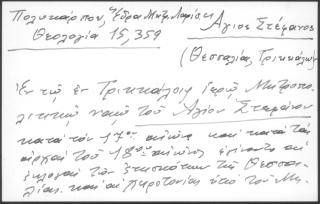 Πολυκάρπου, Ἕδρα Μητρ. Λαρίσης Ἅγιος Στέφανος
Θεολογία 15, 359
(Θεσσαλίας, Τρικκάλων)
Ἐν τῷ ἐν Τρικκάλοις ἱερῷ Μητροπο-
λιτικῷ ναῷ τοῦ Ἁγίου Στεφάνου
κατὰ τὸν 17ον αἰῶνα καὶ κατὰ τὰς
ἀρχὰς τοῦ 18ου αἰῶνος ἐγίνοντο αἱ
ἐκλογαὶ τῶν ἐπισκόπων τῆς Θεσσα-
λίας καὶ αἱ χειροτονίαι ὑπὸ τοῦ Μη-